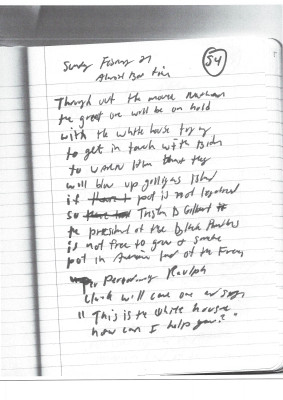 54
Sunday
Almost
Through out the movie
the great one will be on hold
with the White house trying
to get in touch with Biden
to warn him that they
will blow up gilligans Island
if pot is not legalized
so Tristin D Gilbert
the president of the Black
is not free to grow & smoke
pot in
Ralph
Clark will come on and says
" This is the White house
how can I help you? "